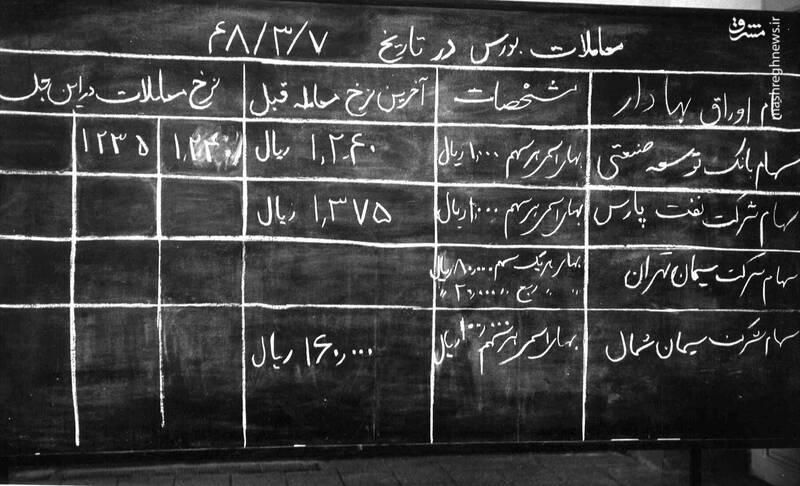 معاملات بورس در تاریخ ۴۸/۳/۷
ام اوراق بهادار مشخصات آخرین نرخ معامله قبل نرخ معاملات در این جل
سهام بانک توسعه صنعتی بهای اسمی هر سهم ۱٫۰۰۰ ریال ۱٫۲۴۰ ریال ۱٫۲۴۰ ۱۲۳۵
سهام شرکت نفت پارس بهای اسمی هر سهم ۱٫۰۰۰ ریال ۱٫۳۷۵ ریال
سهام شرکت سیمان تهران بهای هر یک سهم ۸۰٫۰۰۰ ریال
" " ربع " ۲۰٫۰۰۰ "
سهام شرکت سیمان شمال بهای اسمی هر سهم ۱۰۰٫۰۰۰ ریال ۱۶۰٫۰۰۰ ریال
مشرق
mashreghnews.ir